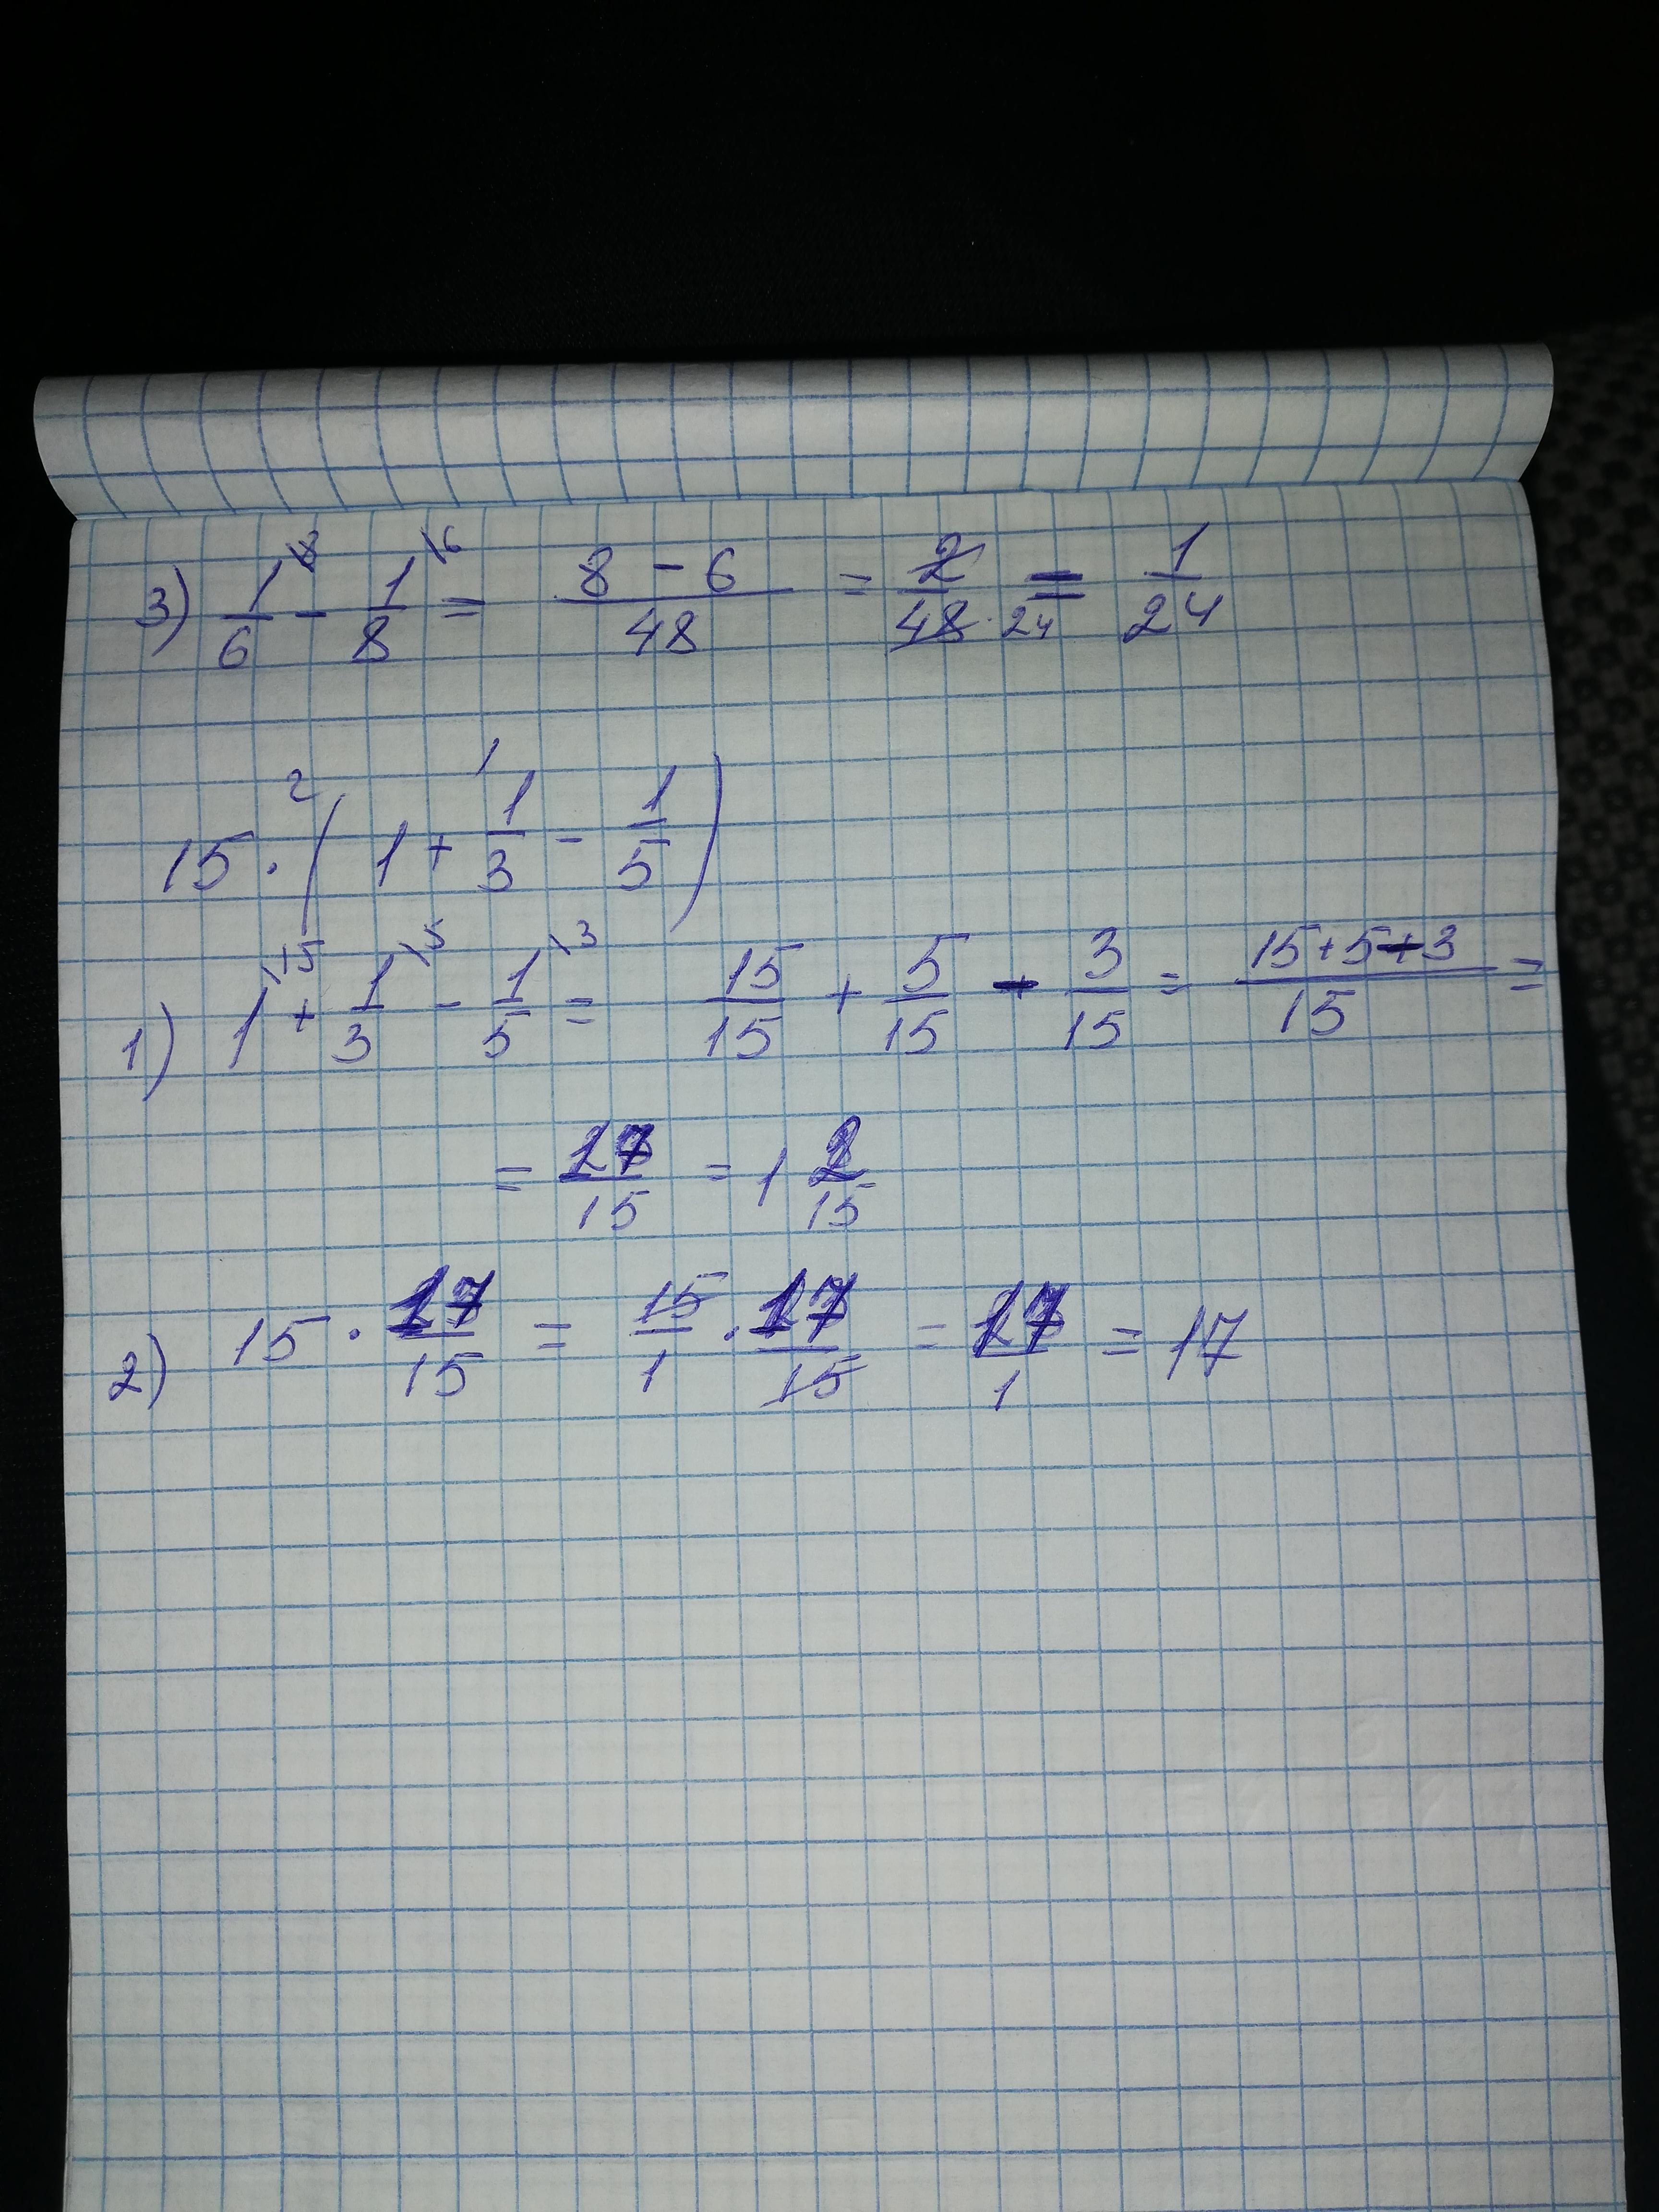 3) 1/6 \8 - 1/8 \6 = (8 - 6)/48 = 2/48 24 = 1/24
2 1
15 · (1 + 1/3 - 1/5)
1) 1 \15 + 1/3 \5 - 1/5 \3 = 15/15 + 5/15 - 3/15 = (15+5-3)/15 =
= 17/15 = 1 2/15
2) 15 · 17/15 = 15/1 · 17/15 = 17/1 = 17